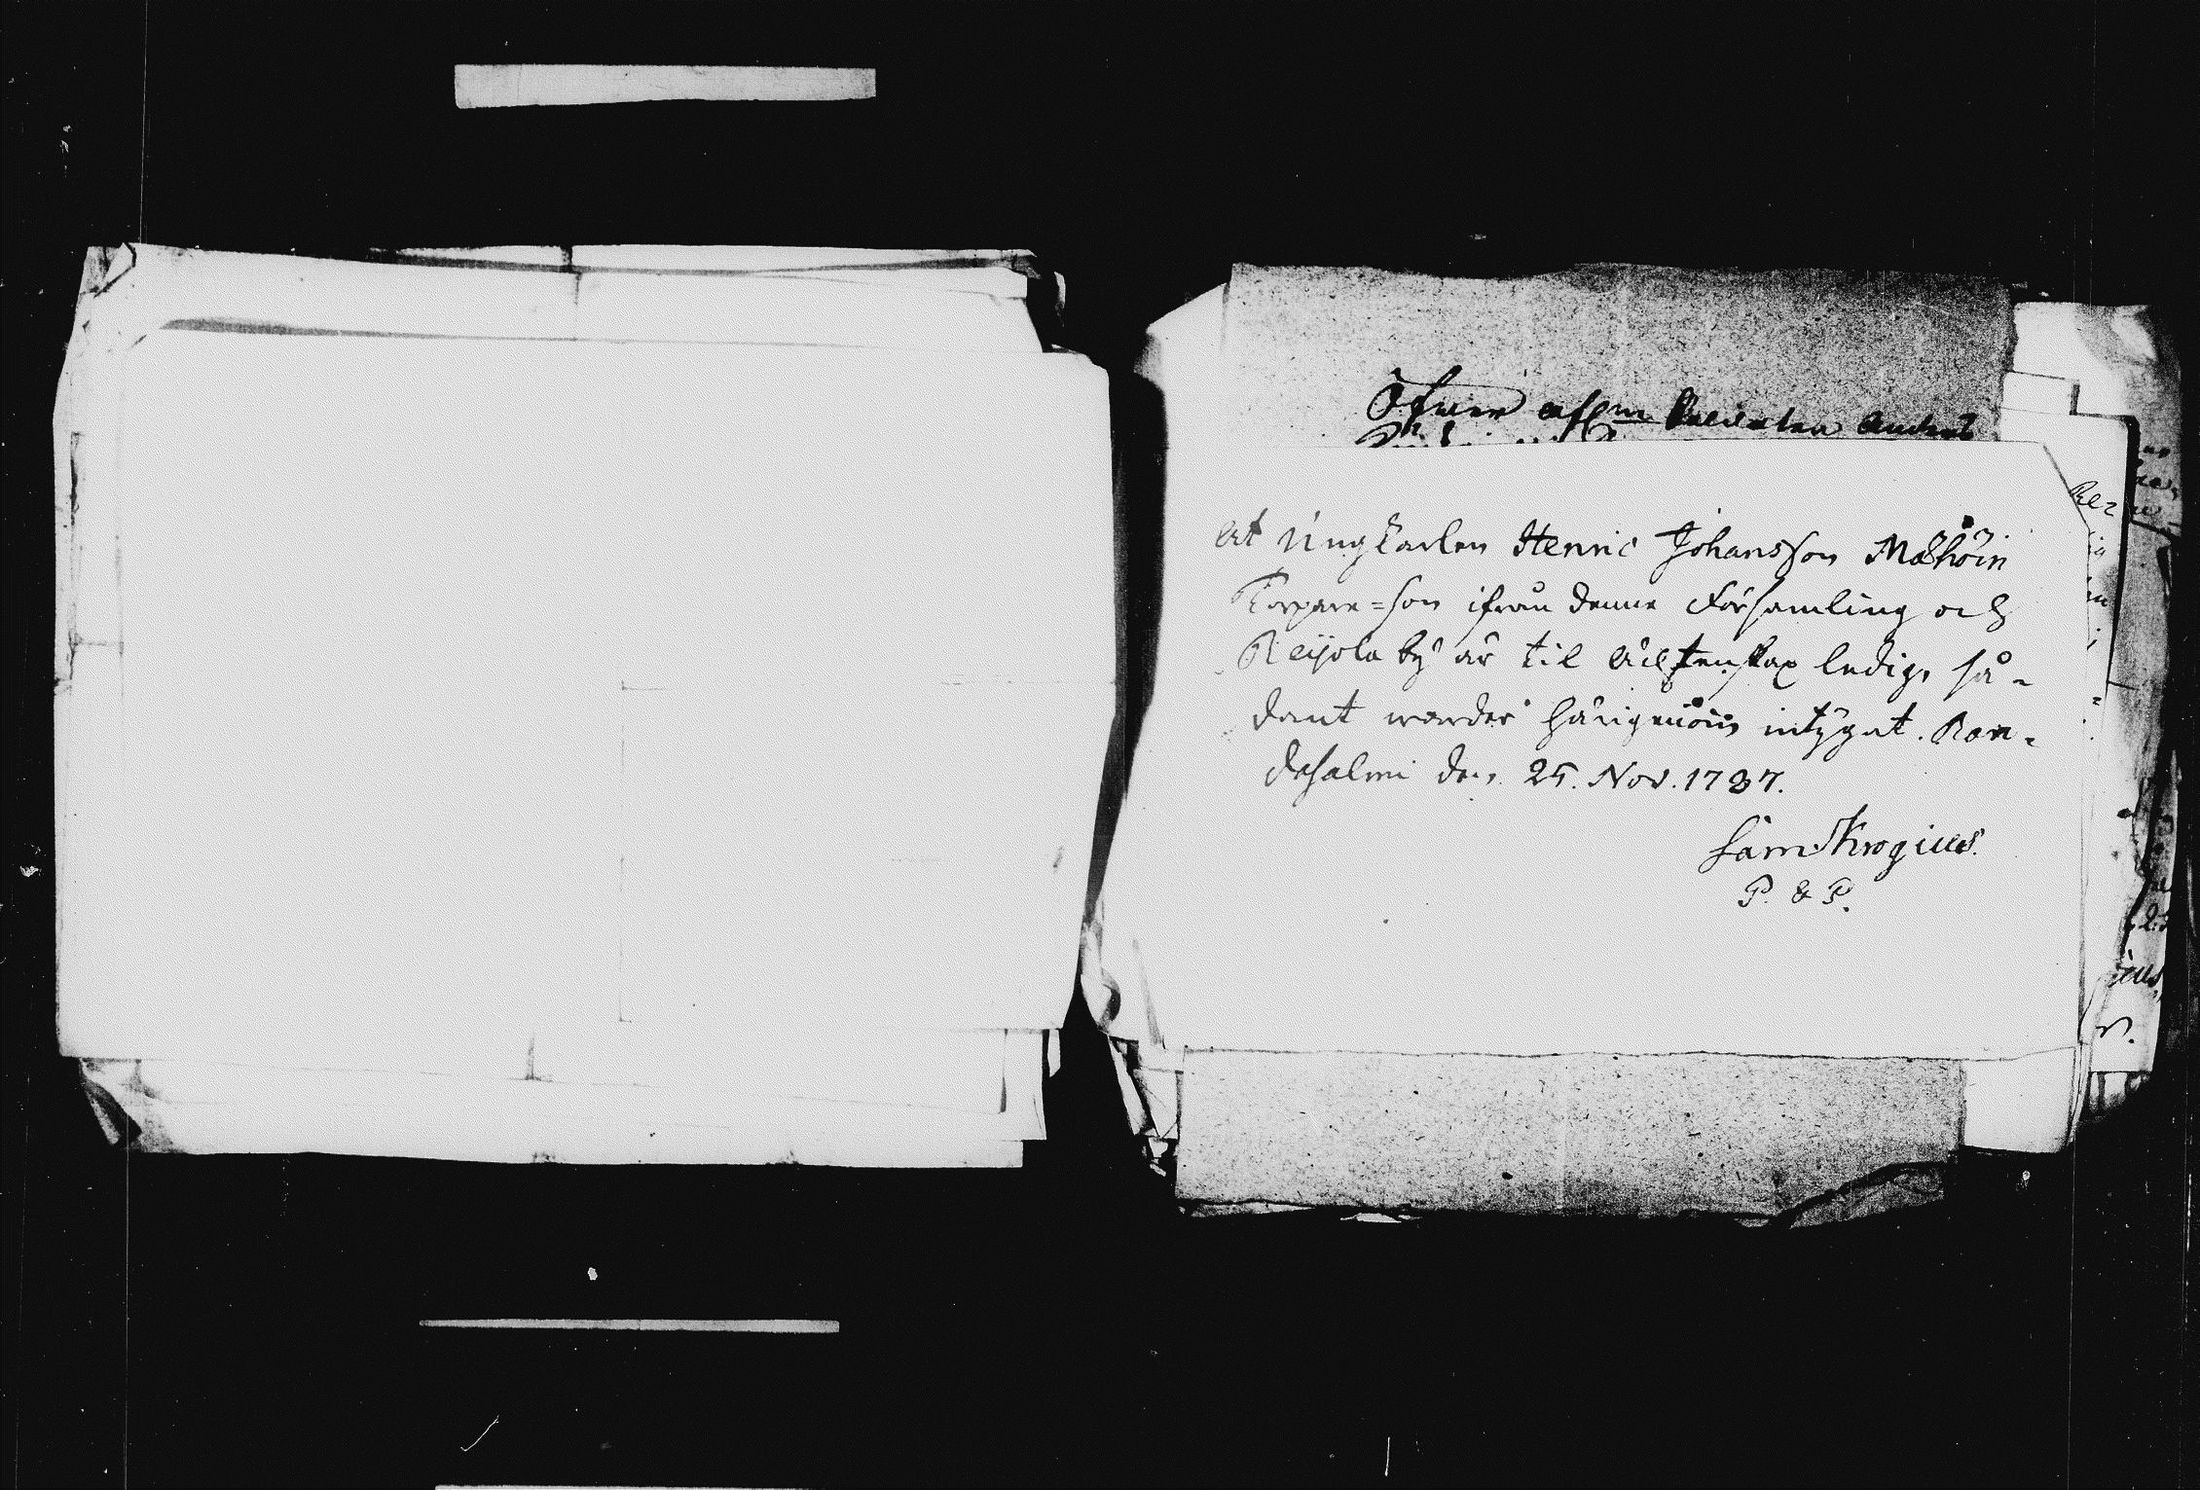 Öfwer afl:ne Anders
At Ungkarlen Henric Johansson Mähöin
Torpare=son ifrån denne Församling och
Reijola bÿ är til Ächtenskap ledig, så-
dant warder härigenöm intÿgat. Ran-
dasalmi den 25. Nov. 1787.
Sam Krogius.
P. & P.